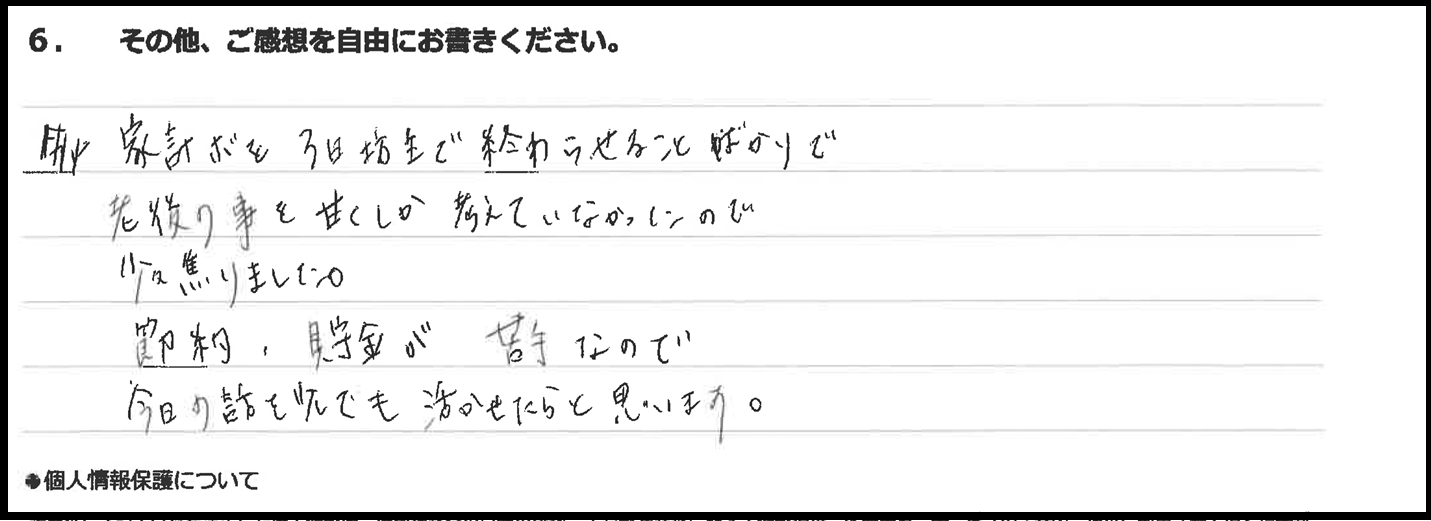 6. その他、ご感想を自由にお書きください。
家計ボを3日坊主で終わらせることばかりで
老後の事を甘くしか考えていなかったので
少々焦りました。
節約、貯金が苦手なので
今日の話を少しでも活かせたらと思います。
●個人情報保護について